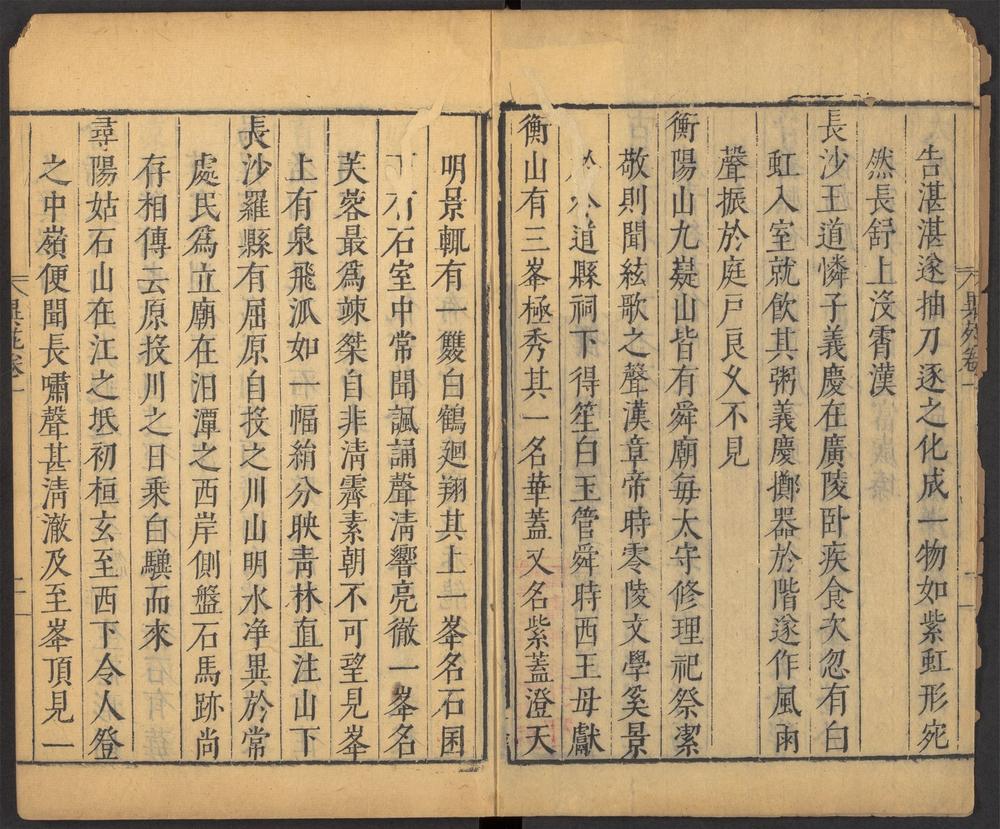 告湛湛遂抽刀逐之化成一物如紫虹形宛
然長舒上沒霄漢
長沙王道憐子義慶在廣陵卧疾食次忽有白
虹入室就飲其粥義慶擲器於階遂作風雨
聲振於庭戸良乆不見
衡陽山九嶷山皆有舜廟每太守修理祀祭潔
敬則聞絃歌之聲漢章帝時零陵文學奚景
道縣祠下得笙白玉管舜時西王母獻
衡山有三峯極秀其一名華蓋又名紫蓋澄天
明景輒有一雙白鶴廻翔其上一峯名石囷
石室中常聞諷誦聲清響亮徹一峯名
芙蓉最爲竦桀自非清霽素朝不可望見峯
上有泉飛泒如一幅絹分映青林直注山下
長沙羅縣有屈原自投之川山明水净異於常
處民爲立廟在汨潭之西岸側盤石馬跡尚
存相傳云原投川之日乗白驥而來
尋陽姑石山在江之坻初桓玄至西下令人登
之中嶺便聞長嘯聲甚清澈及至峯頂見一